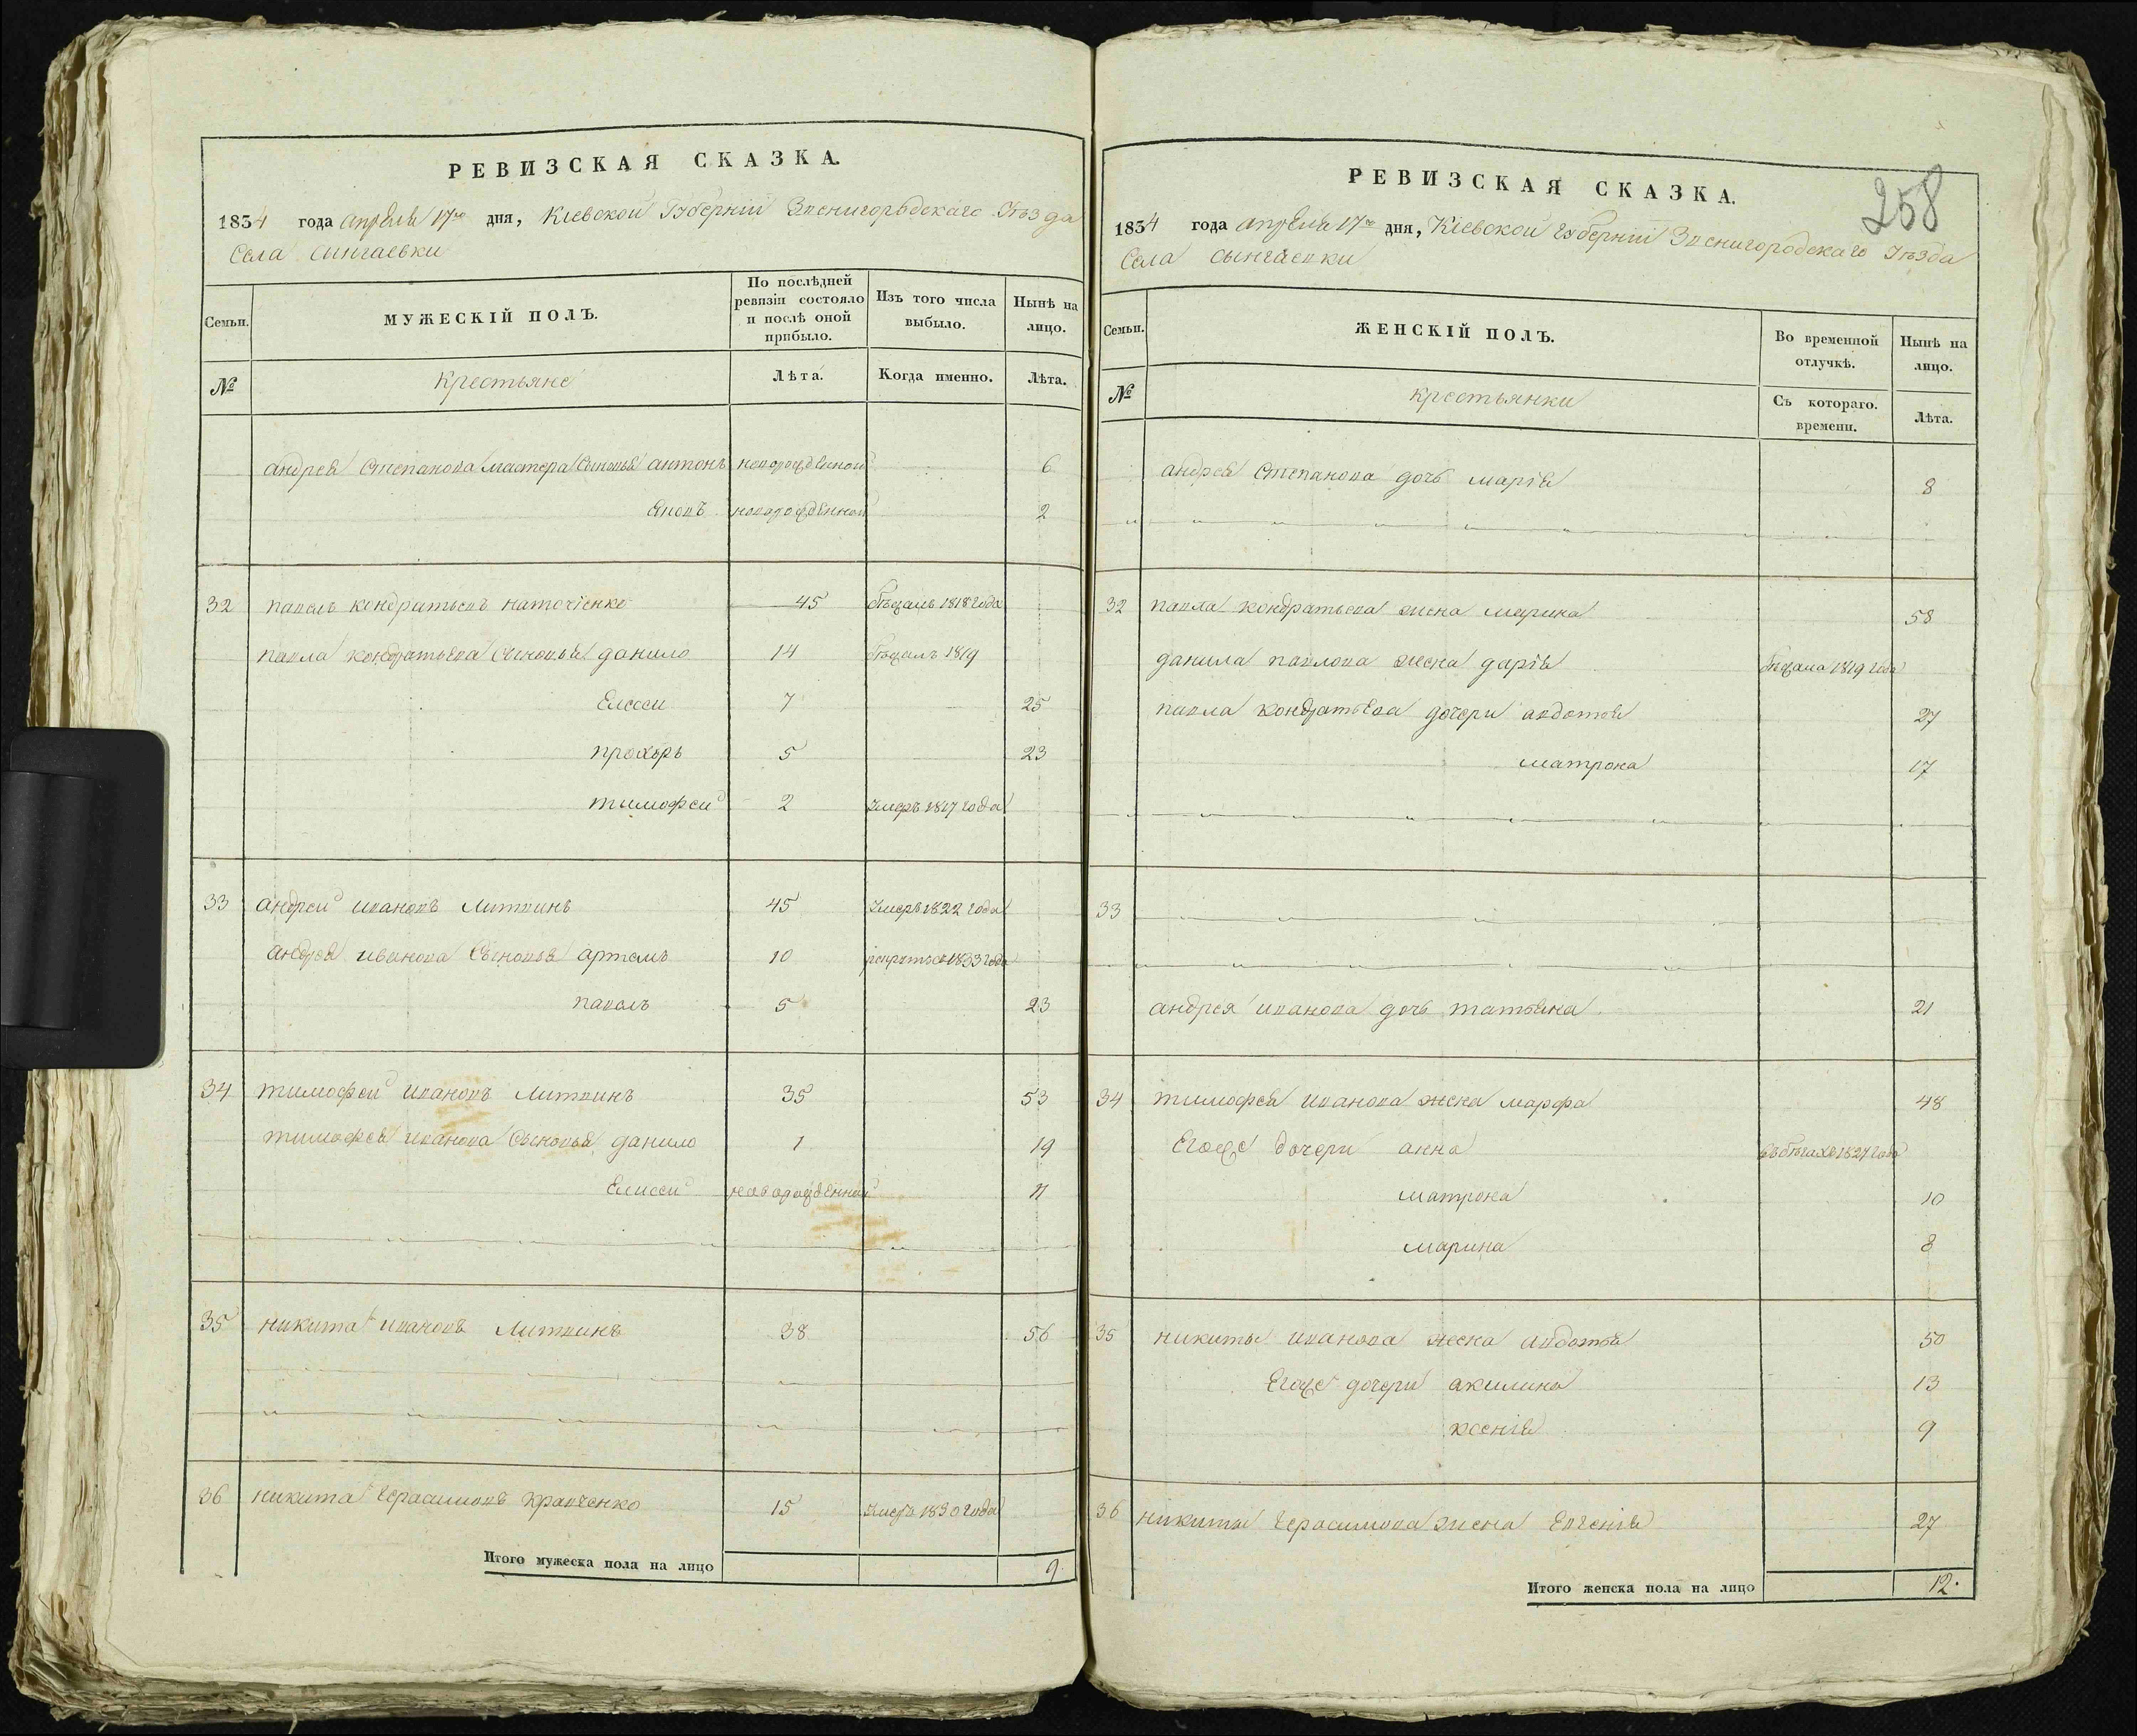 РЕВИЗСКАЯ СКАЗКА.
1834 года апреля 17го дня, Кіевской Губерніи Звенигородскаго Уѣзда
Села Сынгаевки
Семьи.
МУЖЕСКІЙ ПОЛЪ.
По послѣдней ревизіи состояло и послѣ оной прибыло.
Изъ того числа выбыло.
Нынѣ на лицо.
№
Крестьяне
Лѣта.
Когда именно.
Лѣта.
андрея Степанова мастера Сыновья антонъ новорожденной 6
новорожденной 2
32 павелъ кондратьевъ 45 бѣжалъ 1818 года
павла кондратьева Сыновья данило 14 бѣжалъ 1819
Елесеи 7 25
прохоръ 5 23
тимофеи 2 Умеръ 1817 года
33 андреи ивановъ Литвинъ 45 Умеръ 1822 года
андрея иванова Сыновья артемъ 10 1833 года
павелъ 5 23
34 тимофеи ивановъ Литвинъ 35 53
тимофея иванова Сыновья данило 1 19
Елисеи новорожденной 11
35 никита ивановъ Литвинъ 38 56
36 никита герасимовъ кравченко 15 Умеръ 1830 года
Итого мужеска пола на лицо 9.
258
РЕВИЗСКАЯ СКАЗКА.
1834 года апреля 17го дня, Кіевской губерніи Звенигородскаго Уѣзда
Села Сынгаевки
Семьи.
ЖЕНСКІЙ ПОЛЪ.
Во временной отлучкѣ.
Нынѣ на лицо.
№
крестьянки
Съ котораго. времени.
Лѣта.
андрея Степанова дочь марія 8
32 павла кондратьева жена марина 58
данила павлова жена дарія бѣжала 1819 года
павла кондратьева дочери авдотья 27
матрона 17
33
андрея иванова дочь татьяна 21
34 тимофея иванова жена марфа 48
Егоже дочери анна въ бѣгахъ 1827 года
матрона 10
марина 8
35 никиты иванова жена авдотья 50
Егоже дочери акилина 13
ксенія 9
36 никиты герасимова жена Евгенія 27
Итого женска пола на лицо 12.